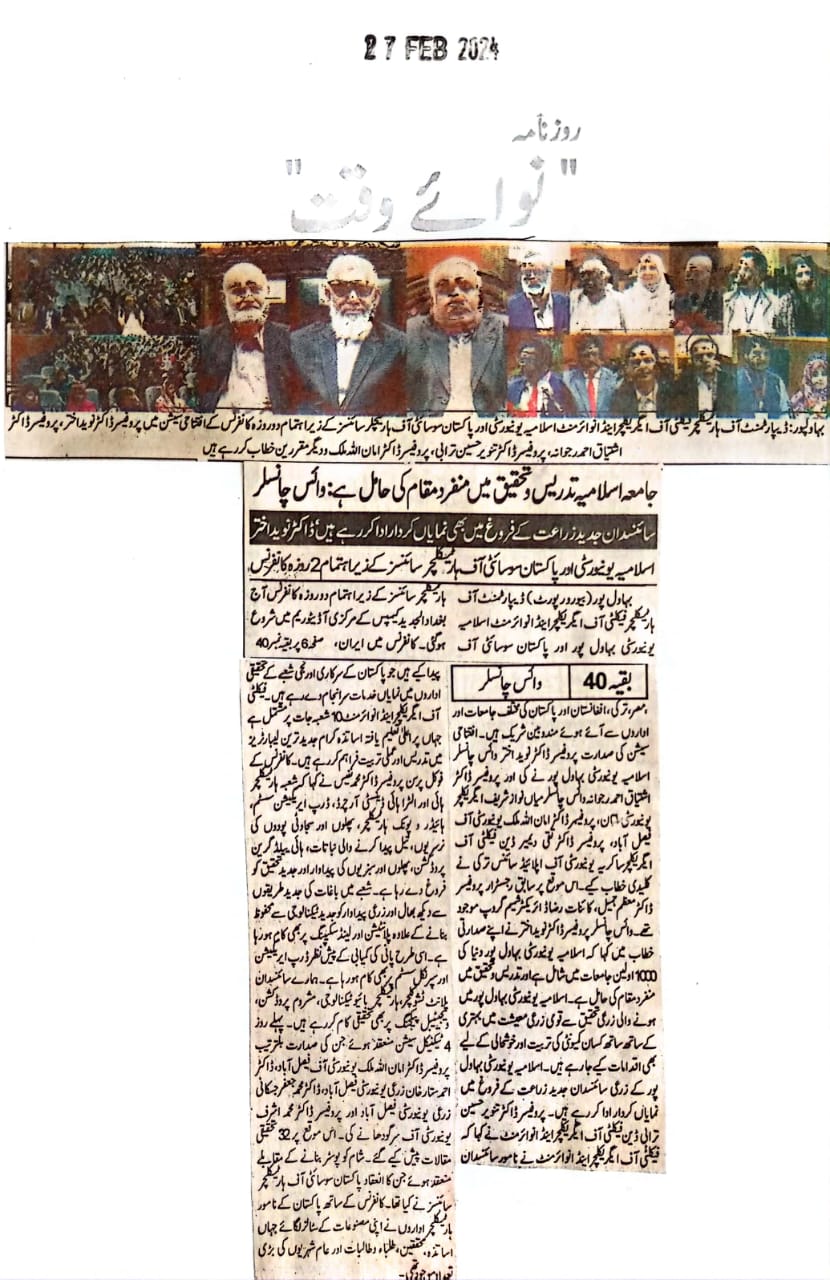 27 FEB 2024
روزنامہ
"نوائے وقت"
بہاولپور: ڈیپارٹمنٹ آف ہارٹیکلچر فیکلٹی آف ایگریکلچر اینڈ انوائرمنٹ اسلامیہ یونیورسٹی اور پاکستان سوسائٹی آف ہارٹیکلچر سائنسز کے زیر اہتمام دو روزہ کانفرنس کے افتتاحی سیشن میں پروفیسر ڈاکٹر نوید اختر، پروفیسر ڈاکٹر
اشتیاق احمد رجوانہ، پروفیسر ڈاکٹر تنویر حسین ترابی، پروفیسر ڈاکٹر امان اللہ ملک و دیگر مقررین خطاب کر رہے ہیں
جامعہ اسلامیہ تدریس و تحقیق میں منفرد مقام کی حامل ہے: وائس چانسلر
سائنسدان جدید زراعت کے فروغ میں بھی نمایاں کردار ادا کر رہے ہیں، ڈاکٹر نوید اختر
اسلامیہ یونیورسٹی اور پاکستان سوسائٹی آف ہارٹیکلچر سائنسز کے زیر اہتمام 2 روزہ کانفرنس
بہاول پور (بیورو رپورٹ) ڈیپارٹمنٹ آف
ہارٹیکلچر فیکلٹی آف ایگریکلچر اینڈ انوائرمنٹ اسلامیہ
یونیورسٹی بہاول پور اور پاکستان سوسائٹی آف
ہارٹیکلچر سائنسز کے زیر اہتمام دو روزہ کانفرنس آج
بغداد الجدید کیمپس کے مرکزی آڈیٹوریم میں شروع
ہوگئی۔ کانفرنس میں ایران، صفحہ 6 پر بقیہ نمبر 40
بقیہ 40 وائس چانسلر
مصر، ترکی، افغانستان اور پاکستان کی مختلف جامعات اور
اداروں سے آئے ہوئے مندوبین شریک ہیں۔ افتتاحی
سیشن کی صدارت پروفیسر ڈاکٹر نوید اختر وائس چانسلر
اسلامیہ یونیورسٹی بہاول پور نے کی اور پروفیسر ڈاکٹر
اشتیاق احمد رجوانہ وائس چانسلر میاں نواز شریف ایگریکلچر
یونیورسٹی، پروفیسر ڈاکٹر امان اللہ ملک یونیورسٹی آف
فیصل آباد، پروفیسر ڈاکٹر ڈین فیکلٹی آف
ایگریکلچر سا کریہ یونیورسٹی آف اپلائیڈ سائنس ترکی نے
کلیدی خطاب کیے۔ اس موقع پر سابق رجسٹرار پروفیسر
ڈاکٹر معظم جمیل، کائنات رضا ڈائریکٹر شمیم گروپ موجود
تھے۔ وائس چانسلر پروفیسر ڈاکٹر نوید اختر نے اپنے صدارتی
خطاب میں کہا کہ اسلامیہ یونیورسٹی بہاول پور دنیا کی
1000 اولین جامعات میں شامل ہے اور تدریس و تحقیق میں
منفرد مقام کی حامل ہے۔ اسلامیہ یونیورسٹی بہاول پور میں
ہونے والی زرعی تحقیق سے قومی زرعی معیشت میں بہتری
کے ساتھ ساتھ کسان کمیونٹی کی تربیت اور خوشحالی کے لیے
بھی اقدامات کیے جا رہے ہیں۔ اسلامیہ یونیورسٹی بہاول
پور کے زرعی سائنسدان جدید زراعت کے فروغ میں
نمایاں کردار ادا کر رہے ہیں۔ پروفیسر ڈاکٹر تنویر حسین
ترابی ڈین فیکلٹی آف ایگریکلچر اینڈ انوائرمنٹ نے کہا کہ
فیکلٹی آف ایگریکلچر اینڈ انوائرمنٹ نے نامور سائنسدان
پیدا کیے ہیں جو پاکستان کے سرکاری اور نجی شعبے کے تحقیقی
اداروں میں نمایاں خدمات سرانجام دے رہے ہیں۔ فیکلٹی
آف ایگریکلچر اینڈ انوائرمنٹ 10 شعبہ جات پر مشتمل ہے
جہاں پر اعلیٰ تعلیم یافتہ اساتذہ کرام جدید ترین لیبارٹریز
میں تدریس اور عملی تربیت فراہم کر رہے ہیں۔ کانفرنس کے
فوکل پرسن پروفیسر ڈاکٹر محمد نفیس نے کہا کہ شعبہ ہارٹیکلچر
ہائی اور الٹرا ہائی ڈینسٹی آرچرڈ، ڈرپ ایریگیشن سسٹم،
ہائیڈرو پونک ہارٹیکلچر، پھلوں اور سجاوٹی پودوں کی
نرسریوں، تیل پیدا کرنے والی نباتات، ہائی ییلڈ گرین
پروڈکشن، پھلوں اور سبزیوں کی پیداوار اور جدید تحقیق کو
فروغ دے رہا ہے۔ شعبے میں باغات کی جدید طریقوں
سے دیکھ بھال اور زرعی پیداوار کو جدید ٹیکنالوجی سے محفوظ
بنانے کے علاوہ پلانٹیشن اور لینڈ سکیپنگ پر بھی کام ہو رہا
ہے۔ اسی طرح پانی کی کمیابی کے پیش نظر ڈرپ ایریگیشن
اور سپرنکل سسٹم پر بھی کام ہو رہا ہے۔ ہمارے سائنسدان
پلانٹ ٹشو کلچر، ہارٹیکلچر بائیو ٹیکنالوجی، مشروم پروڈکشن،
ویجیٹیبل پر بھی تحقیقی کام کر رہے ہیں۔ پہلے روز
4 ٹیکنیکل سیشن منعقد ہوئے جن کی صدارت بالترتیب
پروفیسر ڈاکٹر امان اللہ ملک یونیورسٹی آف فیصل آباد، ڈاکٹر
احمد ستار خان زرعی یونیورسٹی فیصل آباد، ڈاکٹر محمد جعفر جسکانی
زرعی یونیورسٹی فیصل آباد اور پروفیسر ڈاکٹر محمد اشرف
یونیورسٹی آف سرگودھا نے کی۔ اس موقع پر 32 تحقیقی
مقالات پیش کیے گئے۔ شام کو پوسٹر بنانے کے مقابلے
منعقد ہوئے جن کا انعقاد پاکستان سوسائٹی آف ہارٹیکلچر
سائنسز نے کیا تھا۔ کانفرنس کے ساتھ پاکستان کے نامور
ہارٹیکلچر اداروں نے اپنی مصنوعات کے سٹالز لگائے جہاں
اساتذہ، محققین، طلباء و طالبات اور عام شہریوں کی بڑی
تعداد موجود تھی۔